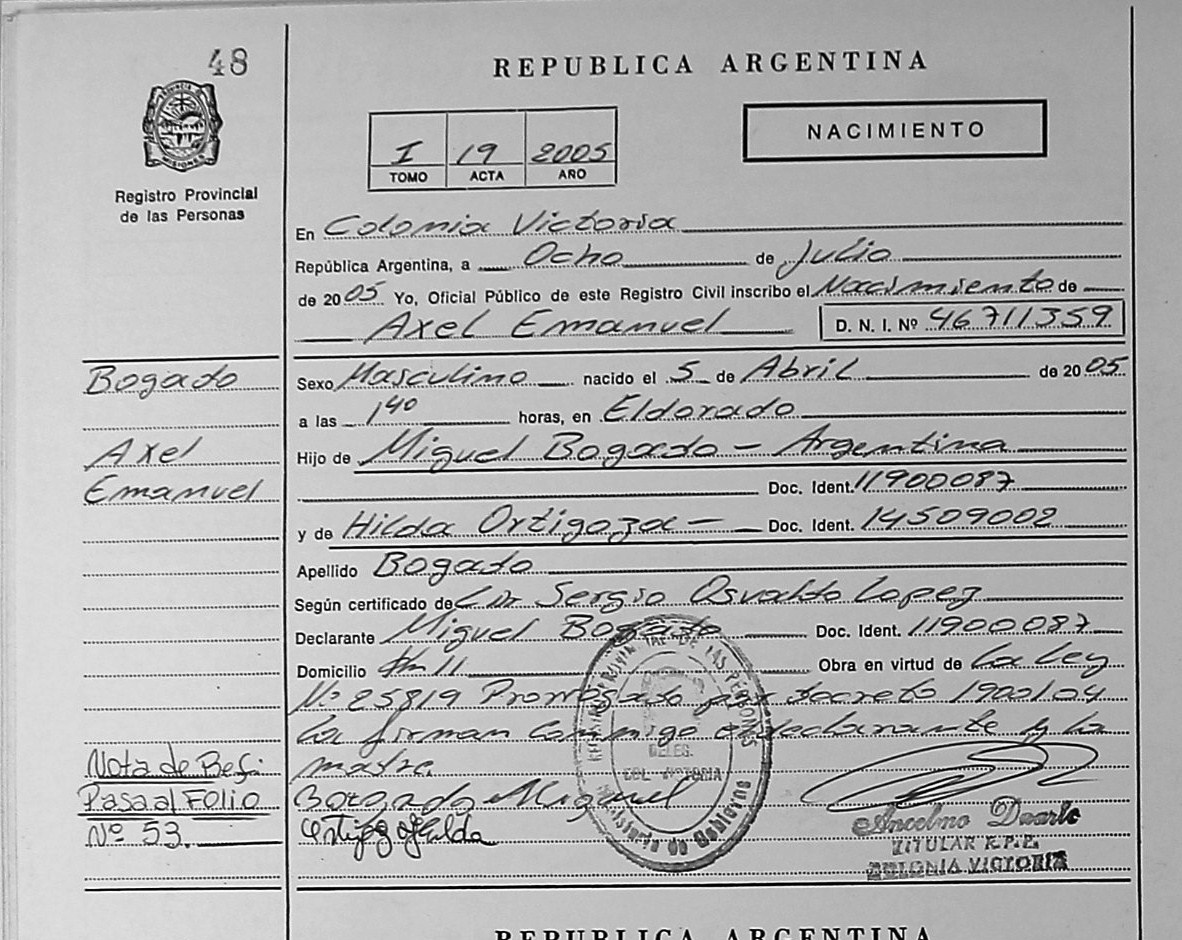 48
REPUBLICA ARGENTINA
NACIMIENTO
I 19 2005
TOMO ACTA AÑO
PROVINCIA DE MISIONES
Registro Provincial
de las Personas
En Colonia Victoria
República Argentina, a Ocho de Julio
de 2005 Yo, Oficial Público de este Registro Civil inscribo el Nacimiento de
Axel Emanuel D. N. I. Nº 46711359
Bogado
Axel
Emanuel
Sexo Masculino nacido el 5 de Abril de 2005
a las 1 40 horas, en Eldorado
Hijo de Miguel Bogado - Argentina
Doc. Ident. 11900087
y de Hilda Ortigoza - Doc. Ident. 14509002
Apellido Bogado
Según certificado de Sergio Osvaldo Lopez
Declarante Miguel Bogado Doc. Ident. 11900087
Domicilio Km 11 Obra en virtud de La Ley
Nº 25819 Prorrogado por decreto 1900/04
La firman Conmigo el declarante y la
madre.
Nota de
Pasa al Folio
Nº 53.
Bogado Miguel
Ortigoza Hilda
DE LAS PERSONAS
DELEG.
COL. VICTORIA
Ministerio de Gobierno
Ancelmo Duarte
TITULAR R.P.P.
COLONIA VICTORIA
REPUBLICA ARGENTINA